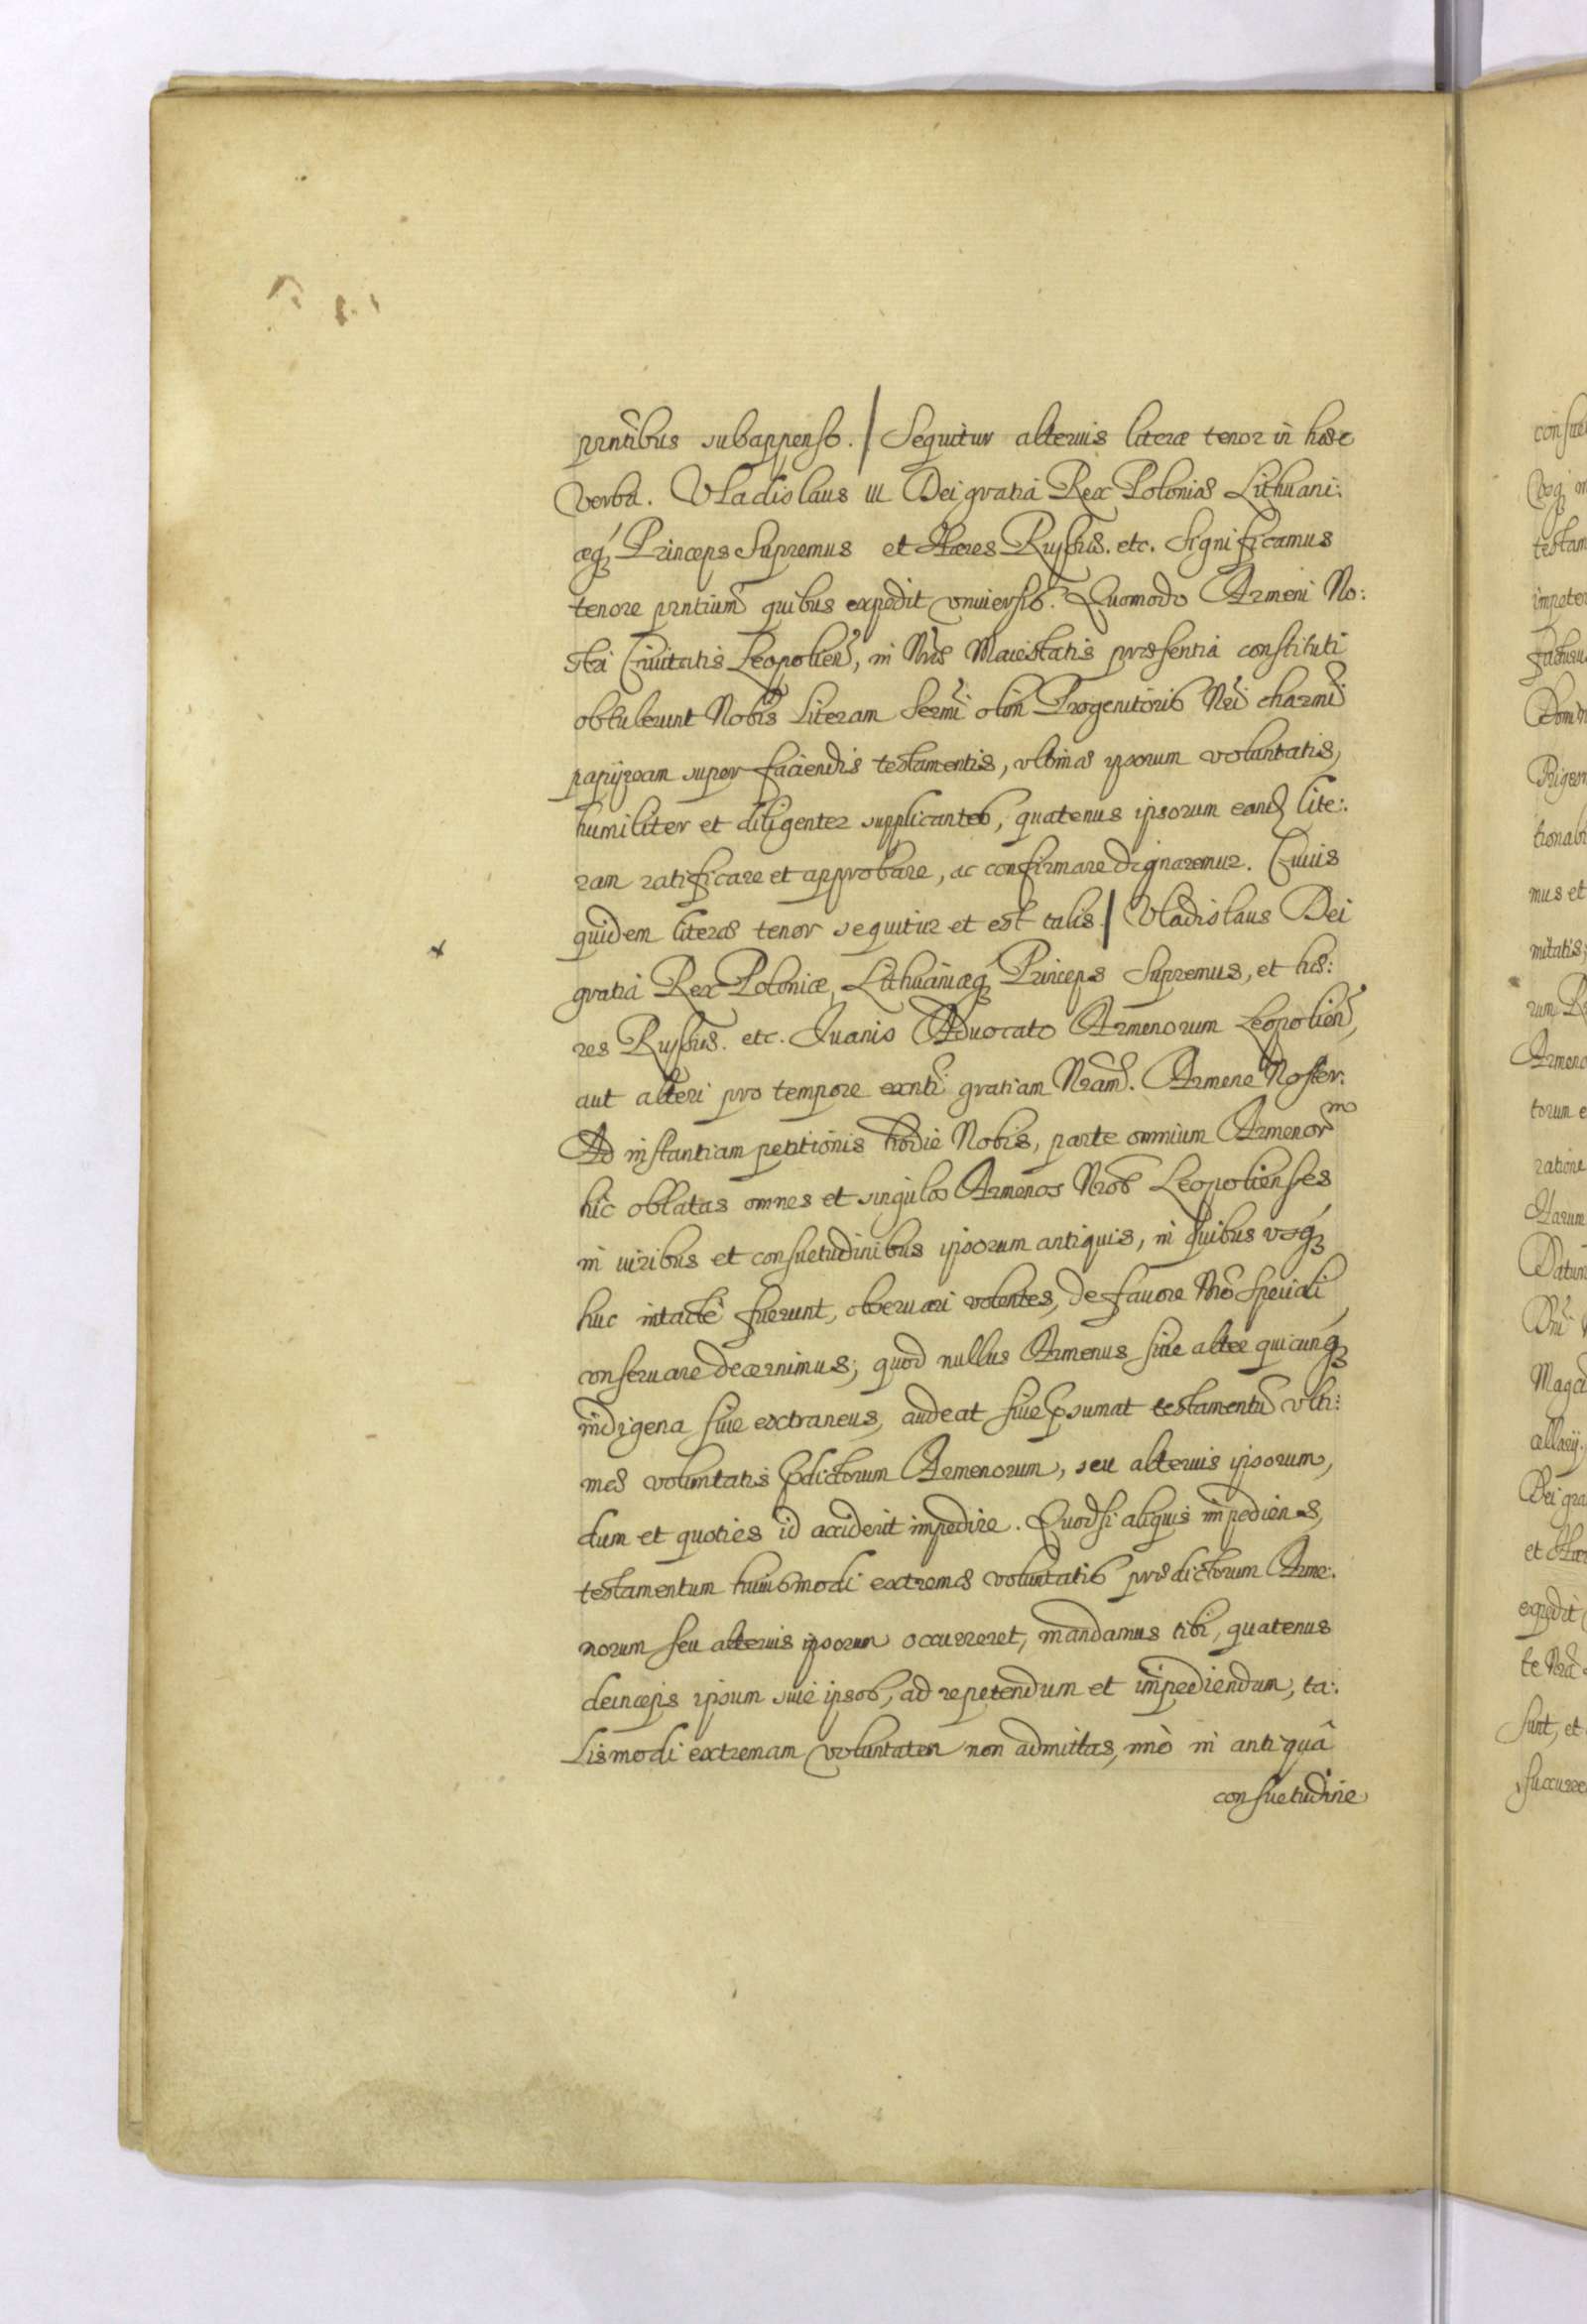 prntibus subappenso. / Sequitur alterius literæ tenor in hæc
verba. Vladislaus III Dei gratia Rex Poloniæ Lithuani:
æq́ Princeps Supremus et Hæres Russiæ. etc. Significamus
tenore prntium quibus expedit vniuersis. Quomodo Armeni No:
stri Ciuitatis Leopolien, in Nræ Maiestatis præsentia constituti
obtulerunt Nobis Literam Sermi olim Progenitoris Nri charmi
papijream super faciendis testamentis, vltimæ ipsorum voluntatis,
humiliter et diligenter supplicantes, quatenus ipsorum eand lite:
ram ratificare et approbare, ac confirmare dignaremur. Cuius
quidem literæ tenor sequitur et est talis. / Vladislaus Dei
gratia Rex Poloniæ, Lithuaniæq́ Princeps Supremus, et hæ:
res Russiæ. etc. Iuanis Aduocato Armenorum Leopolien,
aut alteri pro tempore exnti gratiam Nram. Armene Noster.
Ad instantiam petitionis hodie Nobis, parte omnium Armenorm
hic oblatas omnes et singulos Armenos Nros Leopolienses
in iuribus et consuetudinibus ipsorum antiquis, in quibus vsq́
huc intacte fuerunt, obseruari volentes, de fauore Nro speciali
conseruare decernimus; quod nullus Armenus siue alter quicunq́
indigena siue extraneus, audeat siue psumat testamentu vlti:
mæ voluntatis pdictorum Armenorum, seu alterius ipsorum,
dum et quoties id acciderit impedire. Quodsi aliquis impediens,
testamentum huiusmodi extremæ voluntatis prædictorum Arme:
norum seu alterius ipsorum occurreret, mandamus tibi, quatenus
deinceps ipsum siue ipsos, ad repetendum et impediendum, ta:
lismodi extremam voluntatem non admittas, imò in antiquâ
consuetudine